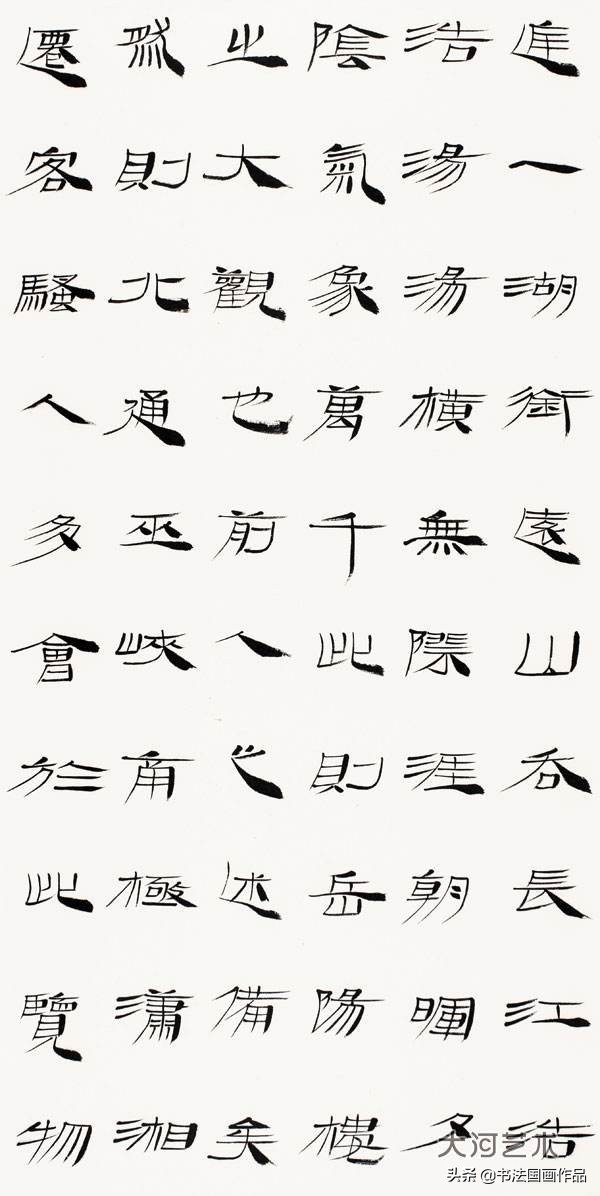 庭一湖銜遠山吞長江浩
浩湯湯橫無際涯朝暉夕
陰氣象萬千此則岳陽樓
之大觀也前人之述備矣
然則北通巫峽南極瀟湘
遷客騷人多會於此覽物
大河艺术
头条 @书法国画作品